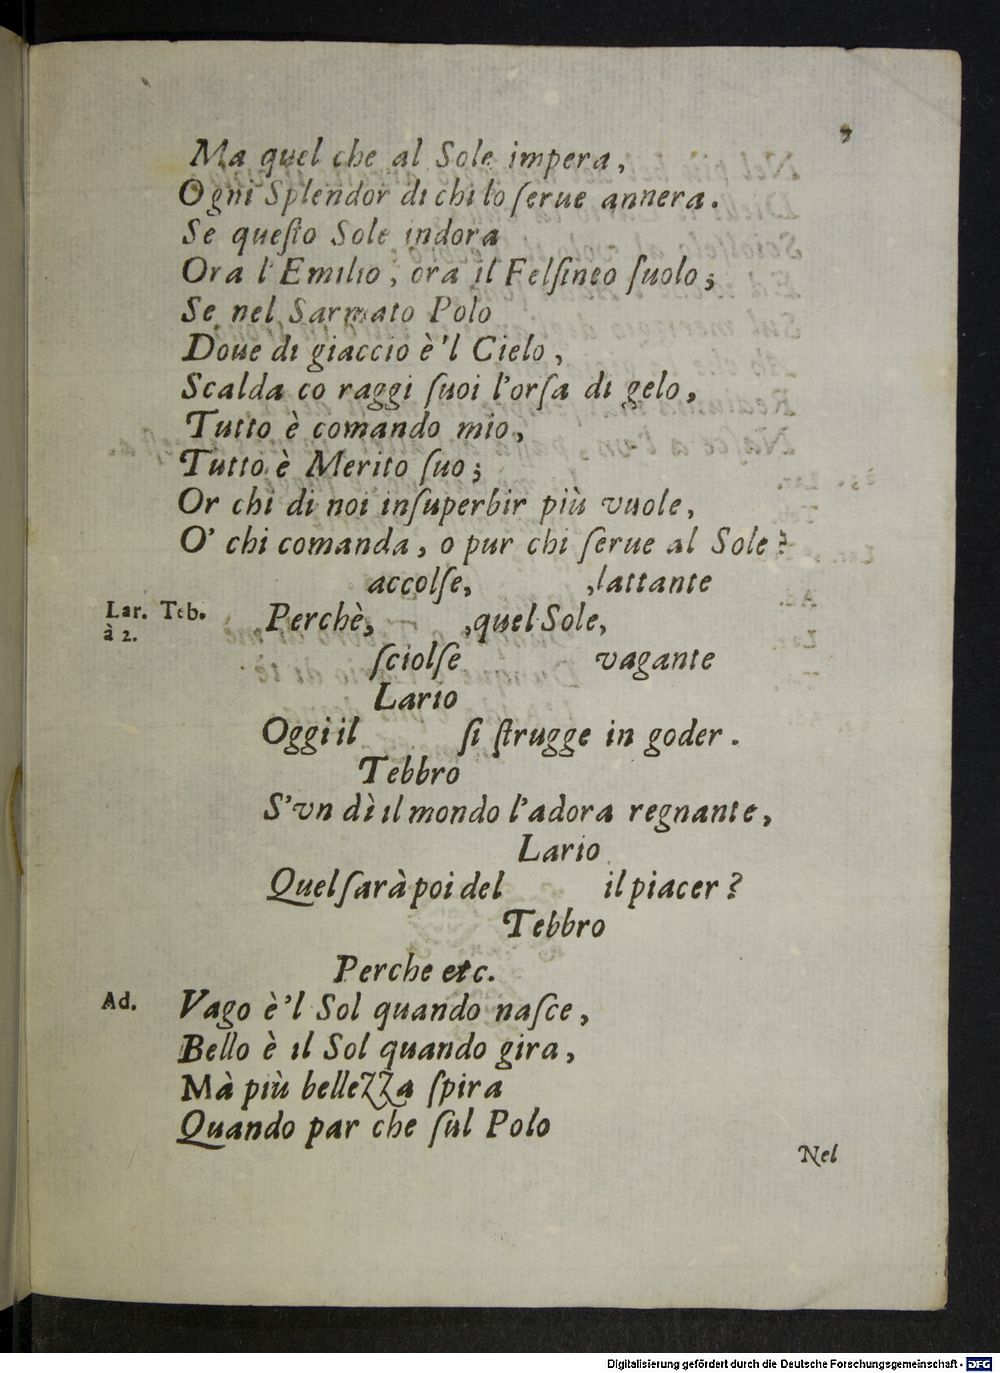 Ma quel che al Sole impera,
Ogni Splendor di chi lo ſerue annera.
Se queſto Sole indora
Ora l'Emilio, ora il Felſineo ſuolo;
Se nel Sarmato Polo
Doue di giaccio è'l Cielo,
Scalda co raggi ſuoi l'orſa di gelo,
Tutto è comando mio,
Tutto è Merito ſuo;
Or chi di noi inſuperbir più vuole,
O' chi comanda, o pur chi ſerue al Sole?
accolſe, ,lattante
Lar. Teb. Perchè, ,quel Sole,
à 2.
ſciolſe vagante
Lario
Oggi il ſi ſtrugge in goder.
Tebbro
S'vn dì il mondo l'adora regnante,
Lario
Quel ſarà poi del il piacer?
Tebbro
Perche etc.
Ad. Vago è'l Sol quando naſce,
Bello è il Sol quando gira,
Mà più bellezza ſpira
Quando par che ſul Polo
Nel
Digitalisierung gefördert durch die Deutsche Forschungsgemeinschaft - DFG